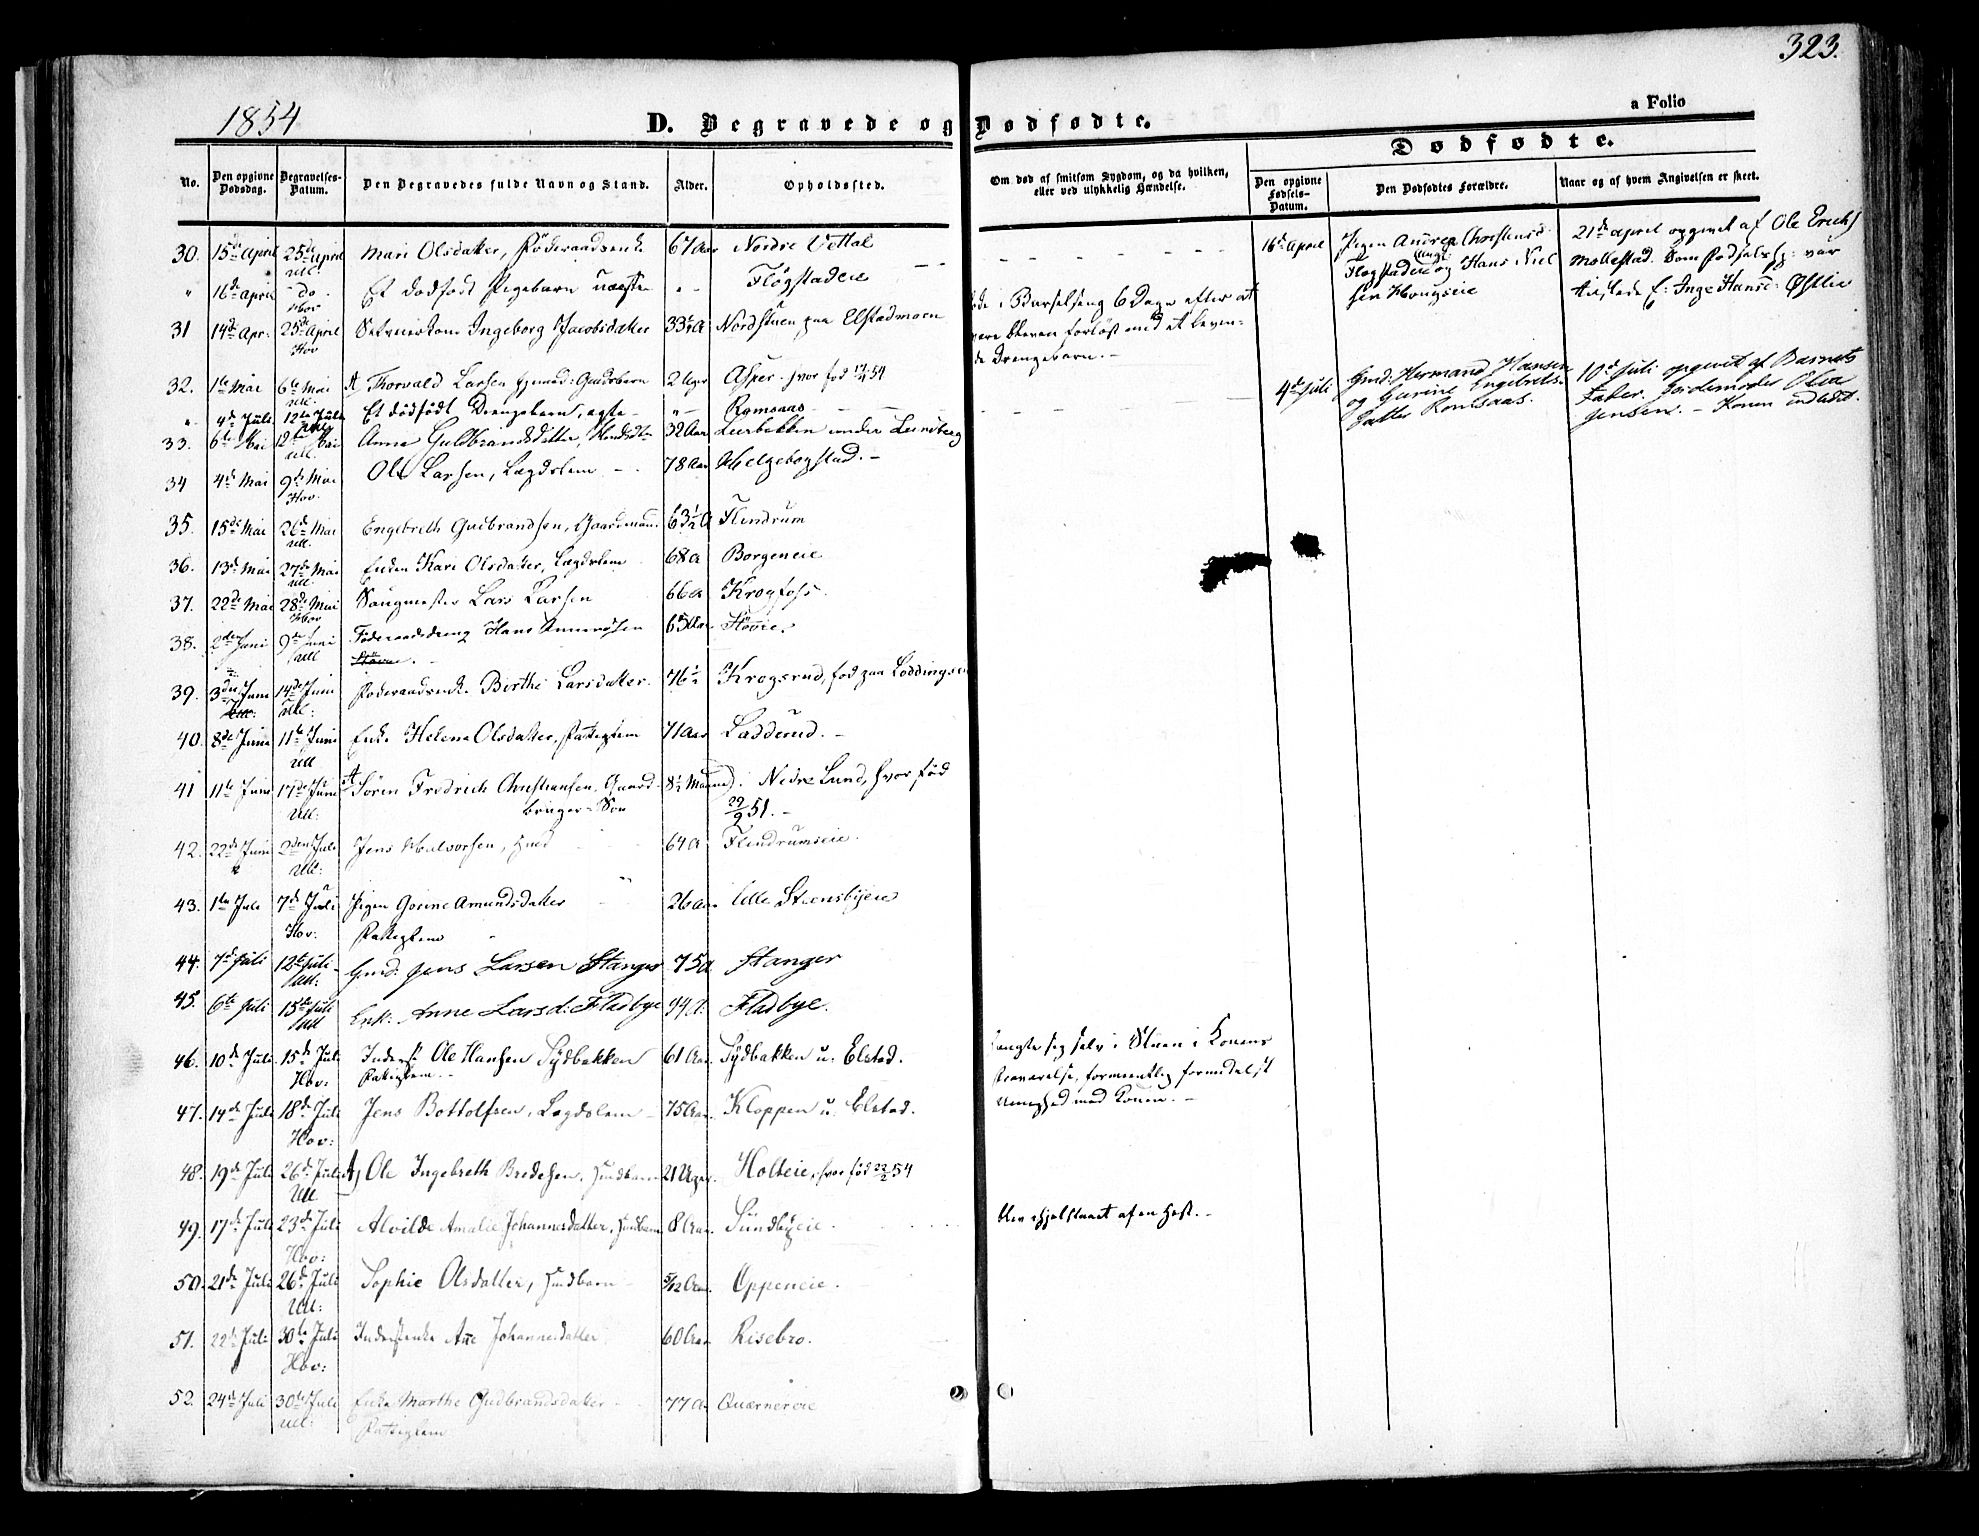 323.
1854
a Folio
D. Begravede og Dødfødte.
Dødfødte.
No.
Den opgivne Dødsdag.
Begravelses-Datum.
Den Begravedes fulde Navn og Stand.
Alder.
Opholdssted.
Om død af smitsom Sygdom, og da hvilken, eller ved ulykkelig Hændelse.
Den opgivne Fødsels-Datum.
Den Dødfødtes Forældre.
Naar og af hvem Angivelsen er skeet.
30. 15de April 25de April Ull. Mari Olsdatter, Føderaadsenke 67 Aar Nordre Vettal
" 16de April do Et dødfødt Pigebarn uægte " - Fløgstadeie
16de April Pigen Andrea Christensd. Flogstadeie og Ungk. Hans Nielsen Haugseie
21de April opgivet af Ole Erichs Mollestad. Som Fødselshj: var tilstede E: Inge Hansd: Østlie
31 14de Apr: 25de April Hov Ingeborg Jacobsdatter 33½ A Nordstuen paa Elstadmoen
døde i Barselseng 6 Dage efter at være bleven forløst med et levende Drengebarn. -
32. 1ste Mai 6te Mai Ull. A Thorvald Larsen 2 Uger Asper hvor fød 17/4 54
" 4de Juli 12te Juli Et dødfødt Drengebarn, ægte - " - Romsaas
4de Juli Gmd: Hermand Hansen og Gurine Engebrets-datter Romsaas.
10de Juli opgivet af Barnets Fader. Jordemoder Olea Jensen. - Konen indledet.
33. 6te Mai 12te Mai Ull. Anne Gulbrandsdatter, 32 Aar Leerbakken under Lundberg
34 4de Mai 9de Mai Hov. Ole Larsen, Lægdslem - 78 Aar Helgebogstad. -
35. 15de Mai 26de Mai Ull. Engebreth Gulbrandsen, Gaardmand 63½ A Flindrum
36. 13de Mai 27de Mai Ull Enken Kari Olsdatter, Lægdslem 68 A Borgeneie
37. 22de Mai 28de Mai Hov Sangmester Lars Larsen 66 A Krogfoss.
38. 2den Juni 9de Juni Ull Føderaadsdreng Hans Amundsen 65 Aar Høvie.
39. 3die Juni 14de Juni Ull: Føderaadsenke Birthe Larsdatter. 76½ Krogsrud, fød paa Loddingseie
40. 8de Juni 11te Juni Ull Enke Helena Olsdatter, Fattiglem 71 Aar Ladderud. -
41 11te Juni 17de Juni Ull: A Søren Fredrich Christiansen, Gaard-
bruger-Søn 8½ Maaned. Nedre Lund, hvor fød
29/9 51. -
42. 22de Juni 2den Juli Ull: Jens Halvorsen, Huusmd 64 A Flindrumseie.
43. 1ste Juli 7de Juli Hov: Pigen Gorine Amundsdatter 26 Aar Lille Steensbyeie
Fattiglem
44. 7de Juli 12te Juli Ull: Gmd: Jens Larsen Stanger 75 A Stanger
45. 6te Juli 15te Juli Ull Enk: Anne Larsd: Fladbye 94 A. Fladbye.
46. 10de Juli 15de Juli Hov: Inderst Ole Hansen Sÿdbakken 61 Aar Sÿdbakken u. Elstad.
Fattiglem. -
hængte sig selv i Stuen i Konens
fraværelse, formeentlig formedelst
Uenighed med Konen. -
47. 14de Juli 18de Juli Hov: Jens Bottolfsen, Lægdslem - 75 Aar. Kloppen u. Elstad.
48. 19de Juli 26de Juli Ull A) Ole Ingebreth Bredesen, Huusbarn 21 Uger. Holteie, hvor fød 22/2 54
49. 17de Juli 23de Juli Hov: Alvilde Amalie Johannesdatter, Huusbarn 8 Aar. Sundbyeie
blev ihjelslaaet af en Hest. -
50. 21de Juli 26de Juli Ull: Sophie Olsdatter, Huusbarn 5/12 Aar Oppeneie.
51. 22de Juli 30te Juli Hov: Inderstenke Ane Johannesdatter 60 Aar Risebro.
52. 24de Juli 30te Juli Ull: Enke Marthe Gudbrandsdatter 77 A. Quærnereie
Fattiglem